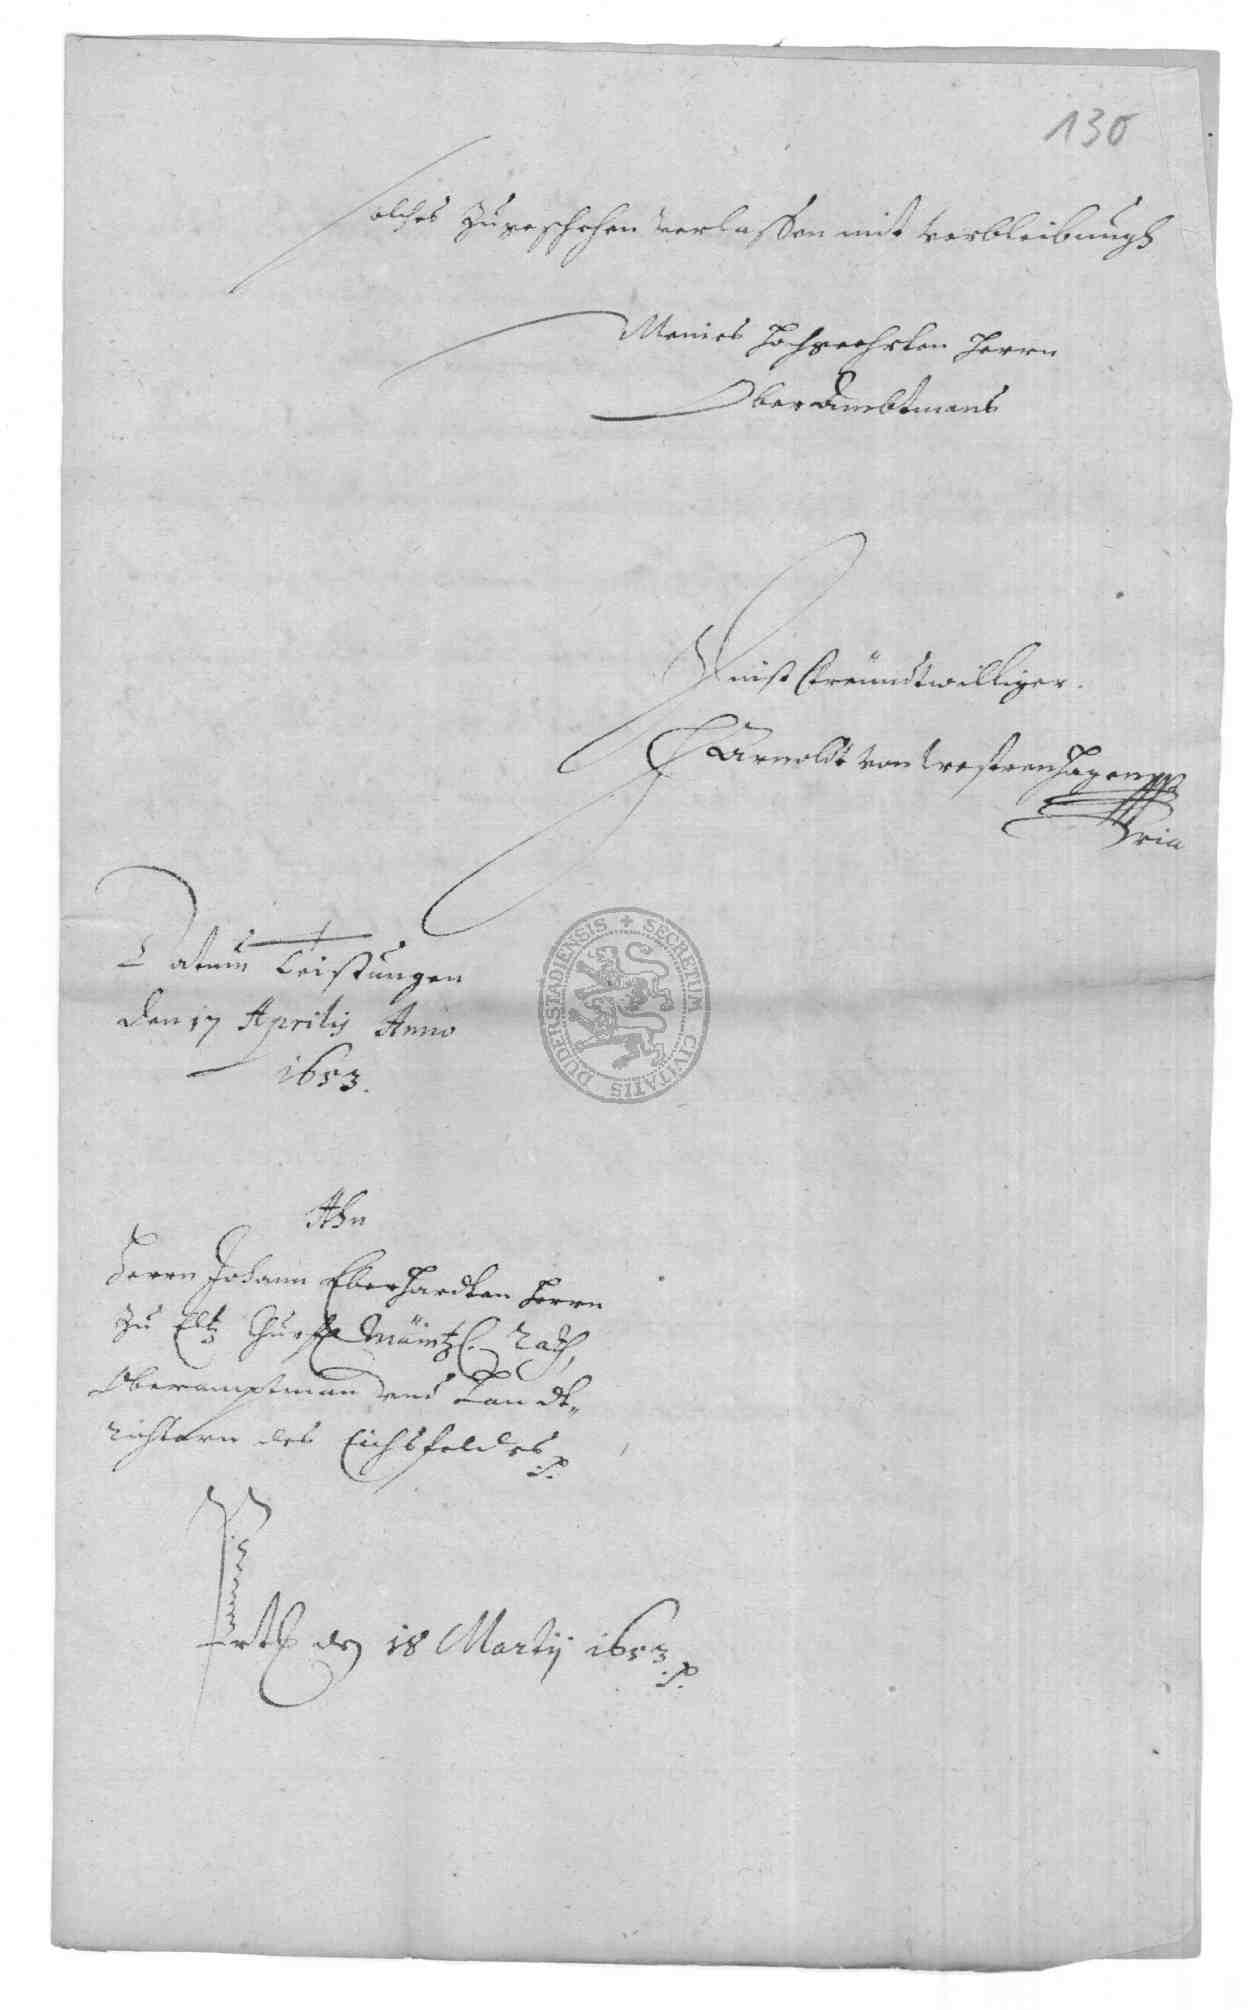 130
solches zugeschehen verlassen mit verbleibungh
Meines hochgeehrten Herrn
Oberambtmans
dinst freündtwilliger.
Arnoldt von westernhagen mppria
Datum Teistungen
den 17 Aprilij Anno
1653.
SECRETUM CIVITATIS DUDERSTADIENSIS
Ahn
Herrn Johann Eberhardten Herrn
zu Eltz Churf. Mäintz. Rath,
Oberamptman undt Landt-
richtern des Eichsfeldes
den 18 Martij 1653